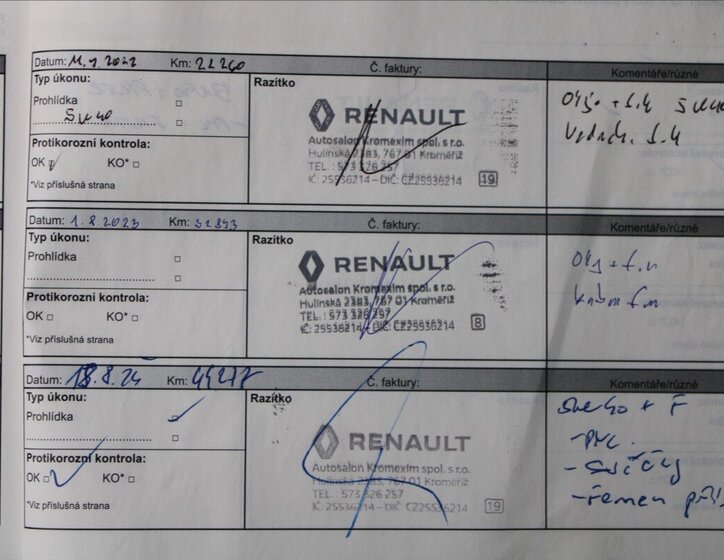 Datum: Km: 22260 Č. faktury: Komentáře/různé
Typ úkonu: Razítko
Prohlídka
RENAULT
Autosalon Kromexim spol. s r.o.
Hulínská 2383, 767 01 Kroměříž
TEL.: 573 326 257
IČ: 25536214 – DIČ: CZ25536214 19
Protikorozní kontrola:
OK KO*
*Viz příslušná strana
Datum: 1.8.2023 Km: 32843 Č. faktury: Komentáře/různé
Typ úkonu: Razítko
Prohlídka
RENAULT
Autosalon Kromexim spol. s r.o.
Hulínská 2383, 767 01 Kroměříž
TEL.: 573 326 257
IČ: 25536214 – DIČ: CZ25536214 8
Protikorozní kontrola:
OK KO*
*Viz příslušná strana
Datum: 18.8.24 Km: Č. faktury: Komentáře/různé
Typ úkonu: Razítko
Prohlídka
RENAULT
Autosalon Kromexim spol. s r.o.
Hulínská 2383, 767 01 Kroměříž
TEL.: 573 326 257
IČ: 25536214 – DIČ: CZ25536214 19
Protikorozní kontrola:
OK KO*
*Viz příslušná strana
- svíčky
- řemen